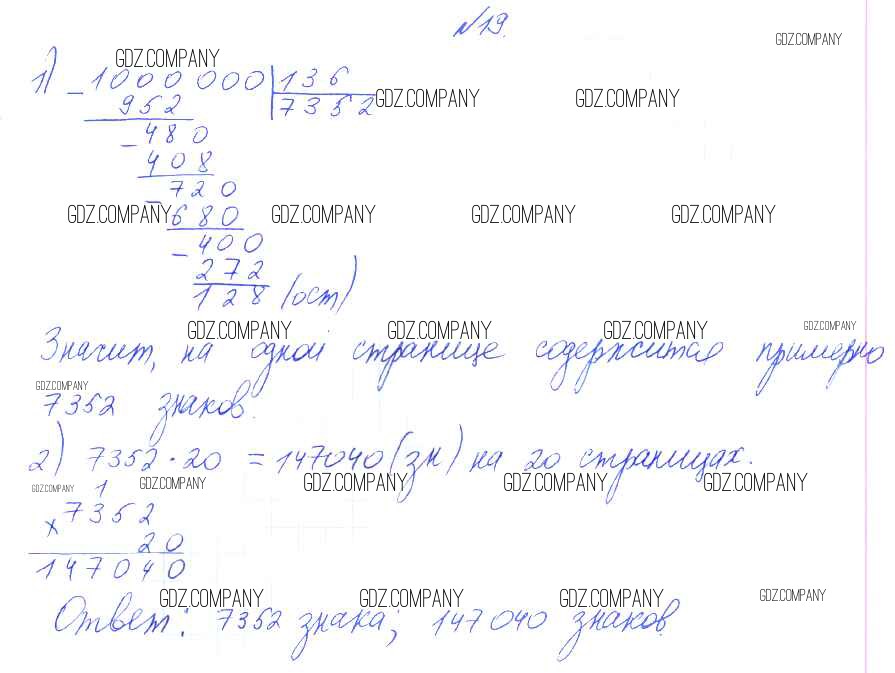 №19.
GDZ.COMPANY
1) - 1000 000 | 136
GDZ.COMPANY
952 7352 GDZ.COMPANY GDZ.COMPANY
- 480
408
720
GDZ.COMPANY - 680 GDZ.COMPANY GDZ.COMPANY GDZ.COMPANY
- 400
272
128 (ост)
GDZ.COMPANY GDZ.COMPANY GDZ.COMPANY GDZ.COMPANY
Значит, на одной странице содержится примерно
GDZ.COMPANY
7352 знаков.
2) 7352 · 20 = 147040 (зн) на 20 страницах.
GDZ.COMPANY 1 GDZ.COMPANY GDZ.COMPANY GDZ.COMPANY GDZ.COMPANY
x 7352
20
147040
GDZ.COMPANY GDZ.COMPANY GDZ.COMPANY GDZ.COMPANY
Ответ: 7352 знака; 147 040 знаков